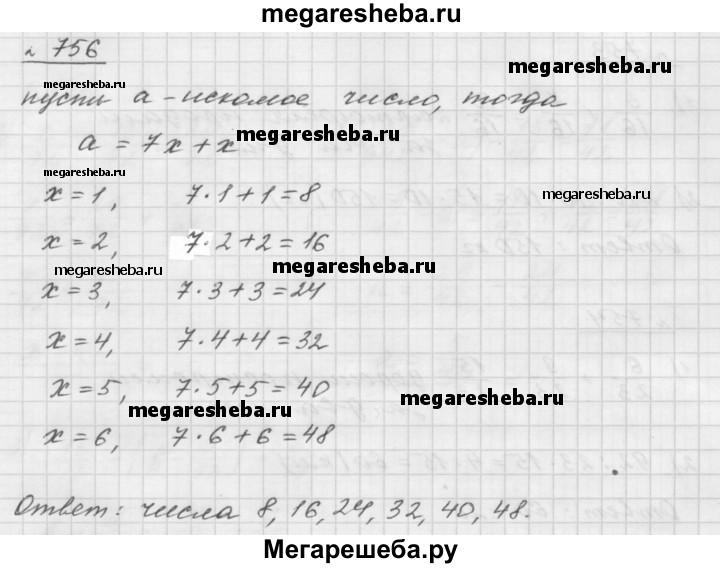 megaresheba.ru
№ 756
megaresheba.ru
megaresheba.ru
пусть a - искомое число, тогда
a = 7x + x
megaresheba.ru
megaresheba.ru
x = 1, 7·1+1=8
megaresheba.ru
x = 2, 7·2+2=16
megaresheba.ru
megaresheba.ru
x = 3, 7·3+3=24
x = 4, 7·4+4=32
x = 5, 7·5+5=40
megaresheba.ru
megaresheba.ru
x = 6, 7·6+6=48
Ответ: числа 8, 16, 24, 32, 40, 48.
Мегарешеба.ру